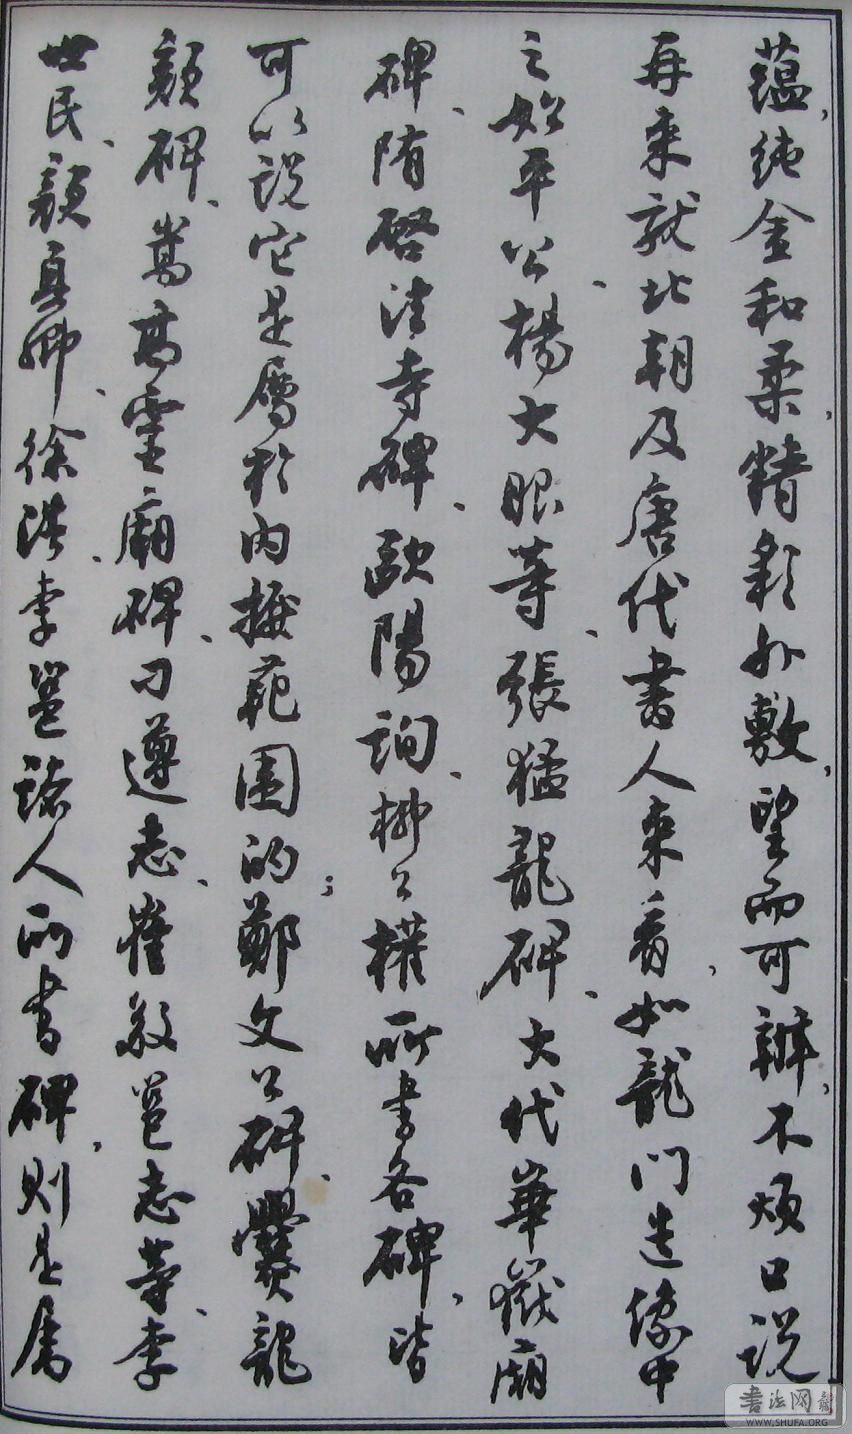 蕴纯金和柔，精彩外敷，望而可辨，不烦口说
再来就北朝及唐代书人来看，如龙门造像中
之始平公、杨大眼等、张猛龙碑、大代华嶽庙
碑、隋启法寺碑、欧阳询、柳公权所书各碑，皆
可以说它是属於内擫范围的；郑文公碑、爨龙
颜碑、嵩高灵庙碑、刁遵志、崔敬邕志等、李
世民、颜真卿、徐浩、李邕诸人所书碑，则是属
書法网
WWW.SHUFA.ORG